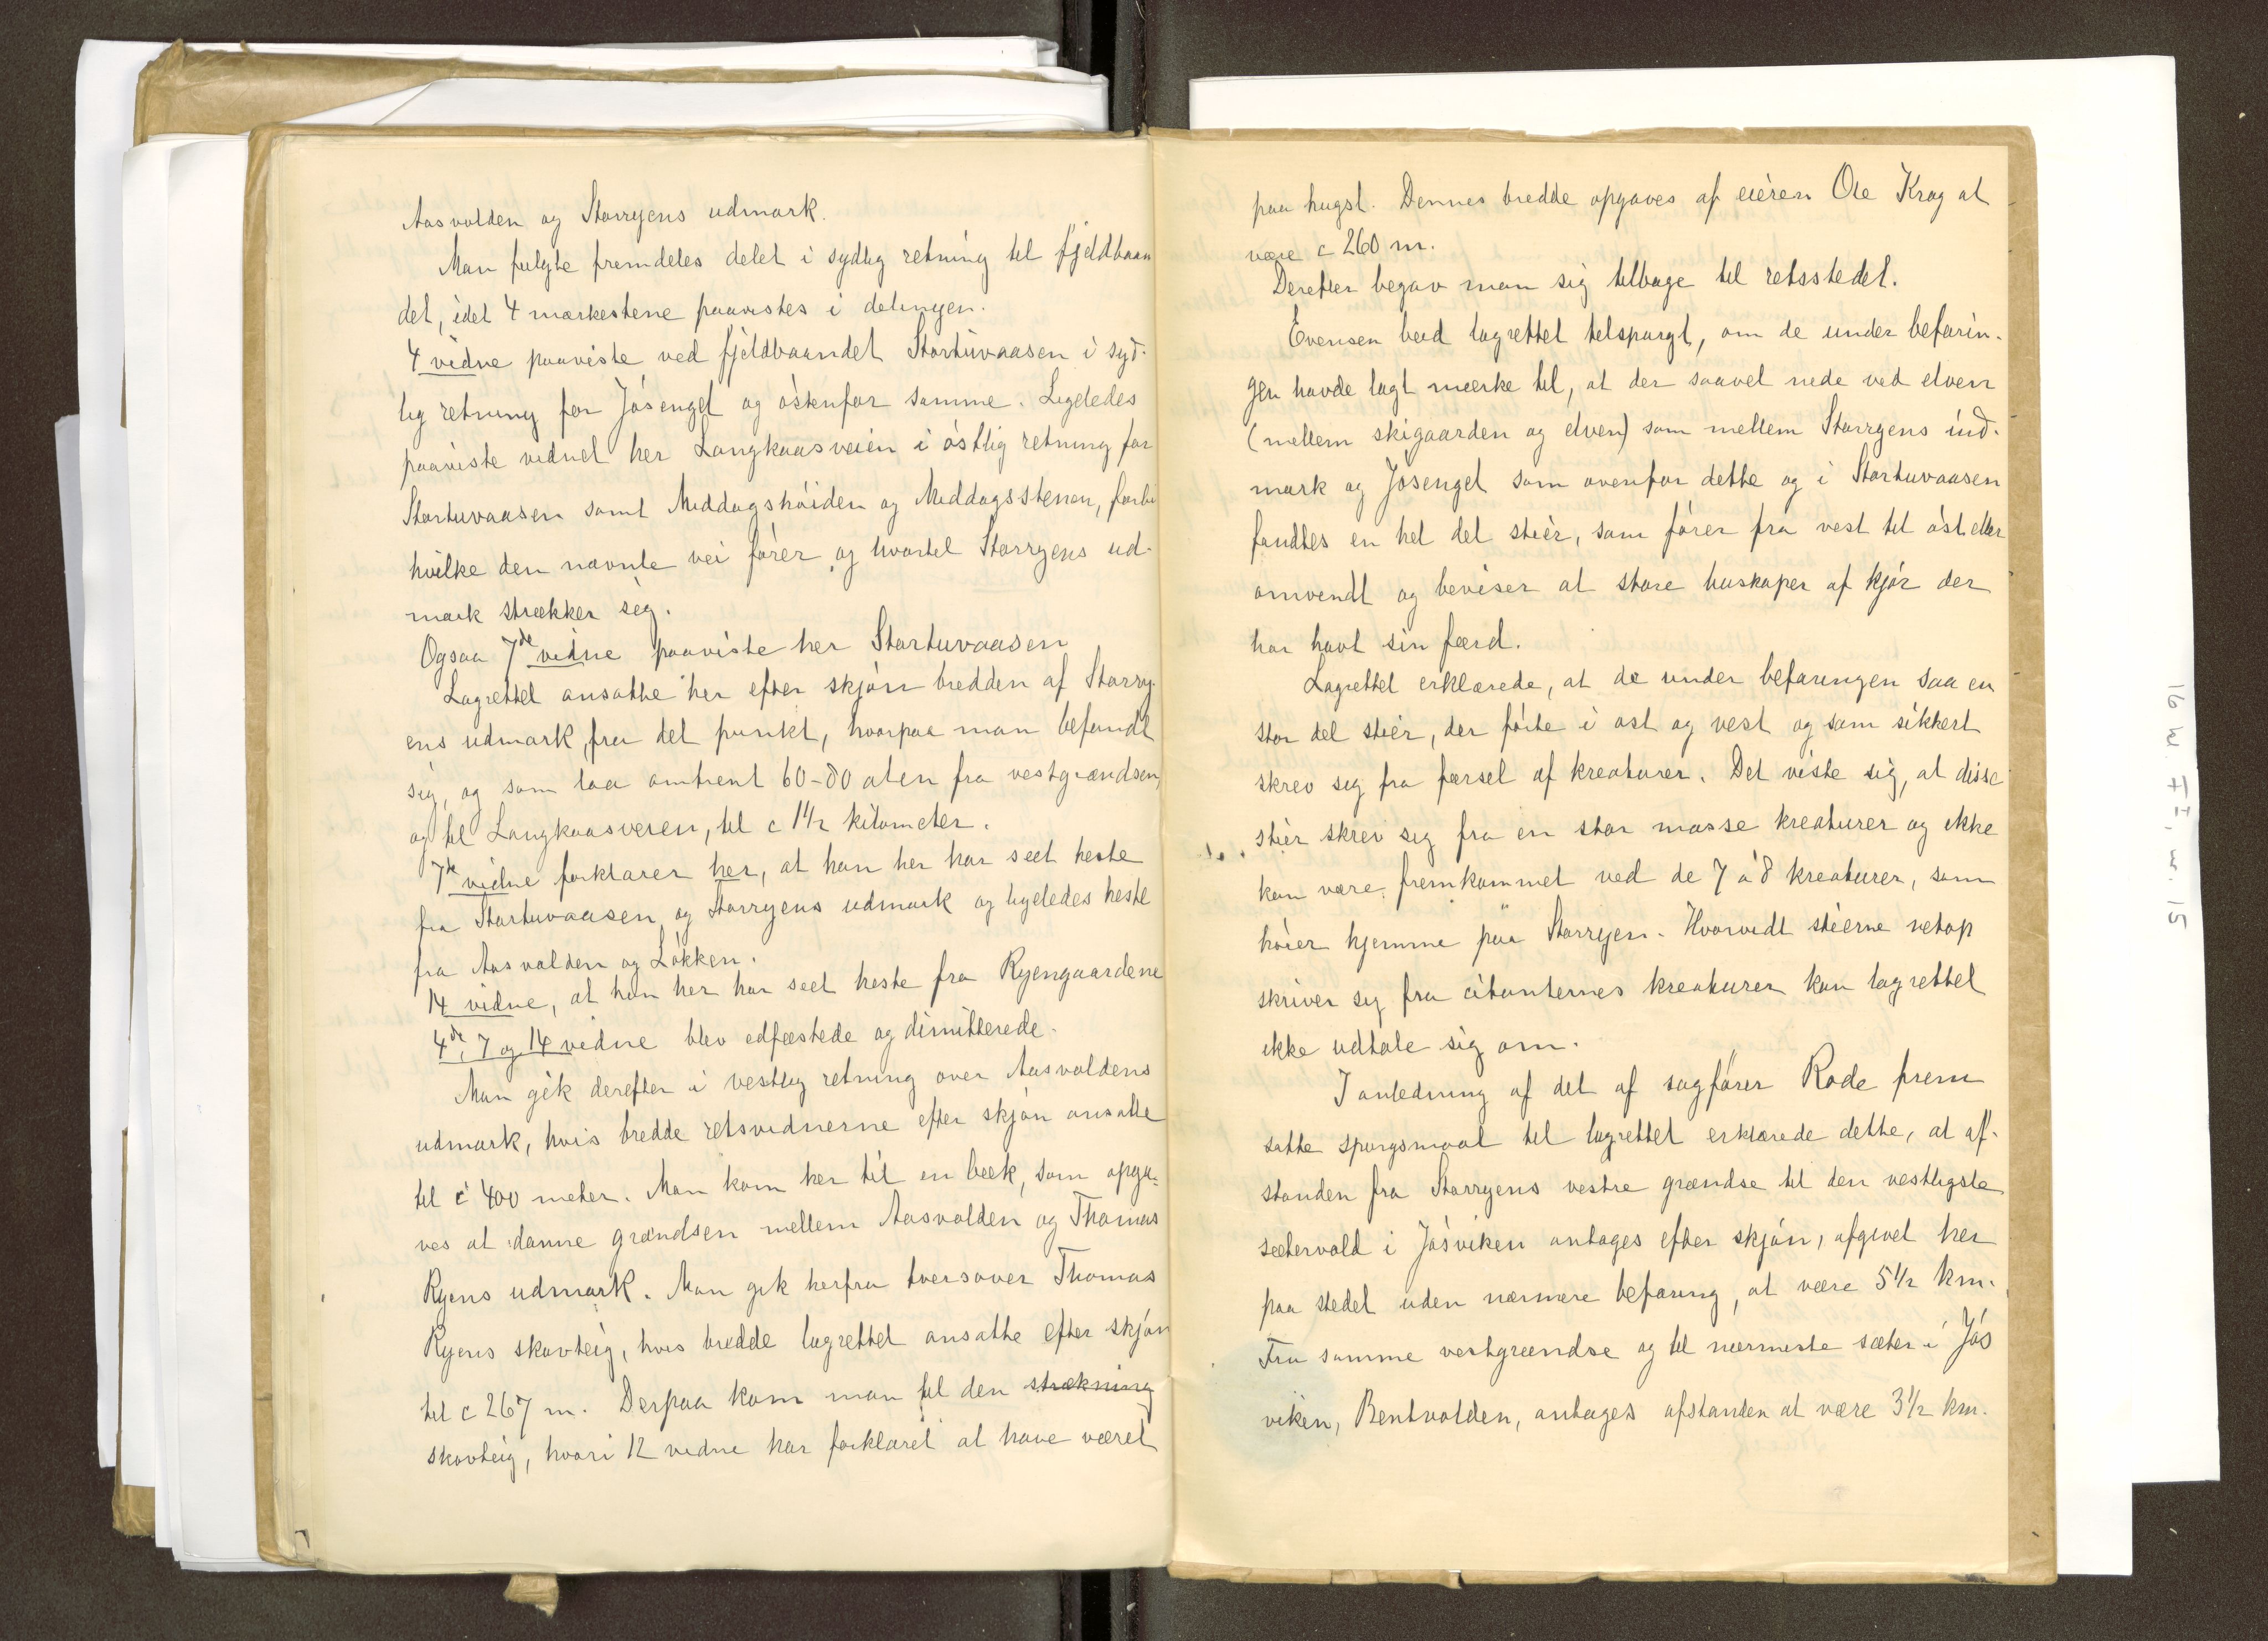 Aasvolden og Storryens udmark.
Man fulgte fremdeles delet i sydlig retning til fjeldbaan
det, idet 4 mærkestene paavistes i delingen.
4 vidne paaviste ved fjeldbaandet Stortuvaasen i syd-
lig retning for Jösenget og östenfor samme. Ligeledes
paaviste vidnet her Langkaasveien i östlig retning for
Stortuvaasen samt Middagshöiden og Middagsstenen, forbi
hvilke den nævnte vei förer og hvortil Storryens ud-
mark strækker sig.
Ogsaa 7de vidne paaviste her Stortuvaasen
Lagrettet ansatte her efter skjön bredden af Storry-
ens udmark, fra det punkt, hvorpaa man befandt
sig, og som laa omtrent 60-80 alen fra vestgrændsen,
og til Langkaasveien, til c 1 1/2 kilometer.
7de vidne forklarer her, at han her har seet heste
fra Stortuvaasen og Storryens udmark og ligeledes heste
fra Aasvolden og Lökken.
14 vidne, at han her har seet heste fra Ryengaardene
4de, 7 og 14 vidne blev edfæstede og dimitterede.
Man gik derefter i vestlig retning over Aasvoldens
udmark, hvis bredde retsvidnerne efter skjön ansatte
til c 400 meter. Man kom her til en bæk, som opga-
ves at danne grændsen mellem Aasvolden og Thomas
Ryens udmark. Man gik herfra tversover Thomas
Ryens skovteig, hvis bredde lagrettet ansatte efter skjön
til c 267 m. Derpaa kom man til den strækning
skovteig, hvori 12 vidne har forklaret at have været
paa hugst. Dennes bredde opgaves af eieren Ole Krog at
være c 260 m.
Derefter begav man sig tilbage til retsstedet.
Evensen bad lagrettet tilspurgt, om de under befarin-
gen havde lagt mærke til, at der saavel nede ved elven
(mellem skigaarden og elven) som mellem Storryens ind-
mark og Jösenget som ovenfor dette og i Stortuvaasen
fandtes en hel del stier, som förer fra vest til öst eller
omvendt og beviser at store buskaper af kjör der
har havt sin færd.
Lagrettet erklærede, at de under befaringen saa en
stor del stier, der förte i ost og vest og som sikkert
skrev sig fra færsel af kreaturer. Det viste sig, at disse
stier skrev sig fra en stor masse kreaturer og ikke
kan være fremkommet ved de 7 à 8 kreaturer, som
höier hjemme paa Storryen. Hvorvidt stierne netop
skriver sig fra citanternes kreaturer kan lagrettet
ikke udtale sig om.
I anledning af det af sagförer Rode frem
satte spörgsmaal til lagrettet erklærede dette, at af-
standen fra Storryens vestre grændse til den vestligste
sætervold i Jösviken antages efter skjön, afgivet her
paa stedet uden nærmere befaring, at være 5 1/2 km.
Fra samme vestgrændse og til nærmeste sæter i Jös
viken, Bentvolden, antages afstanden at være 3 1/2 km.